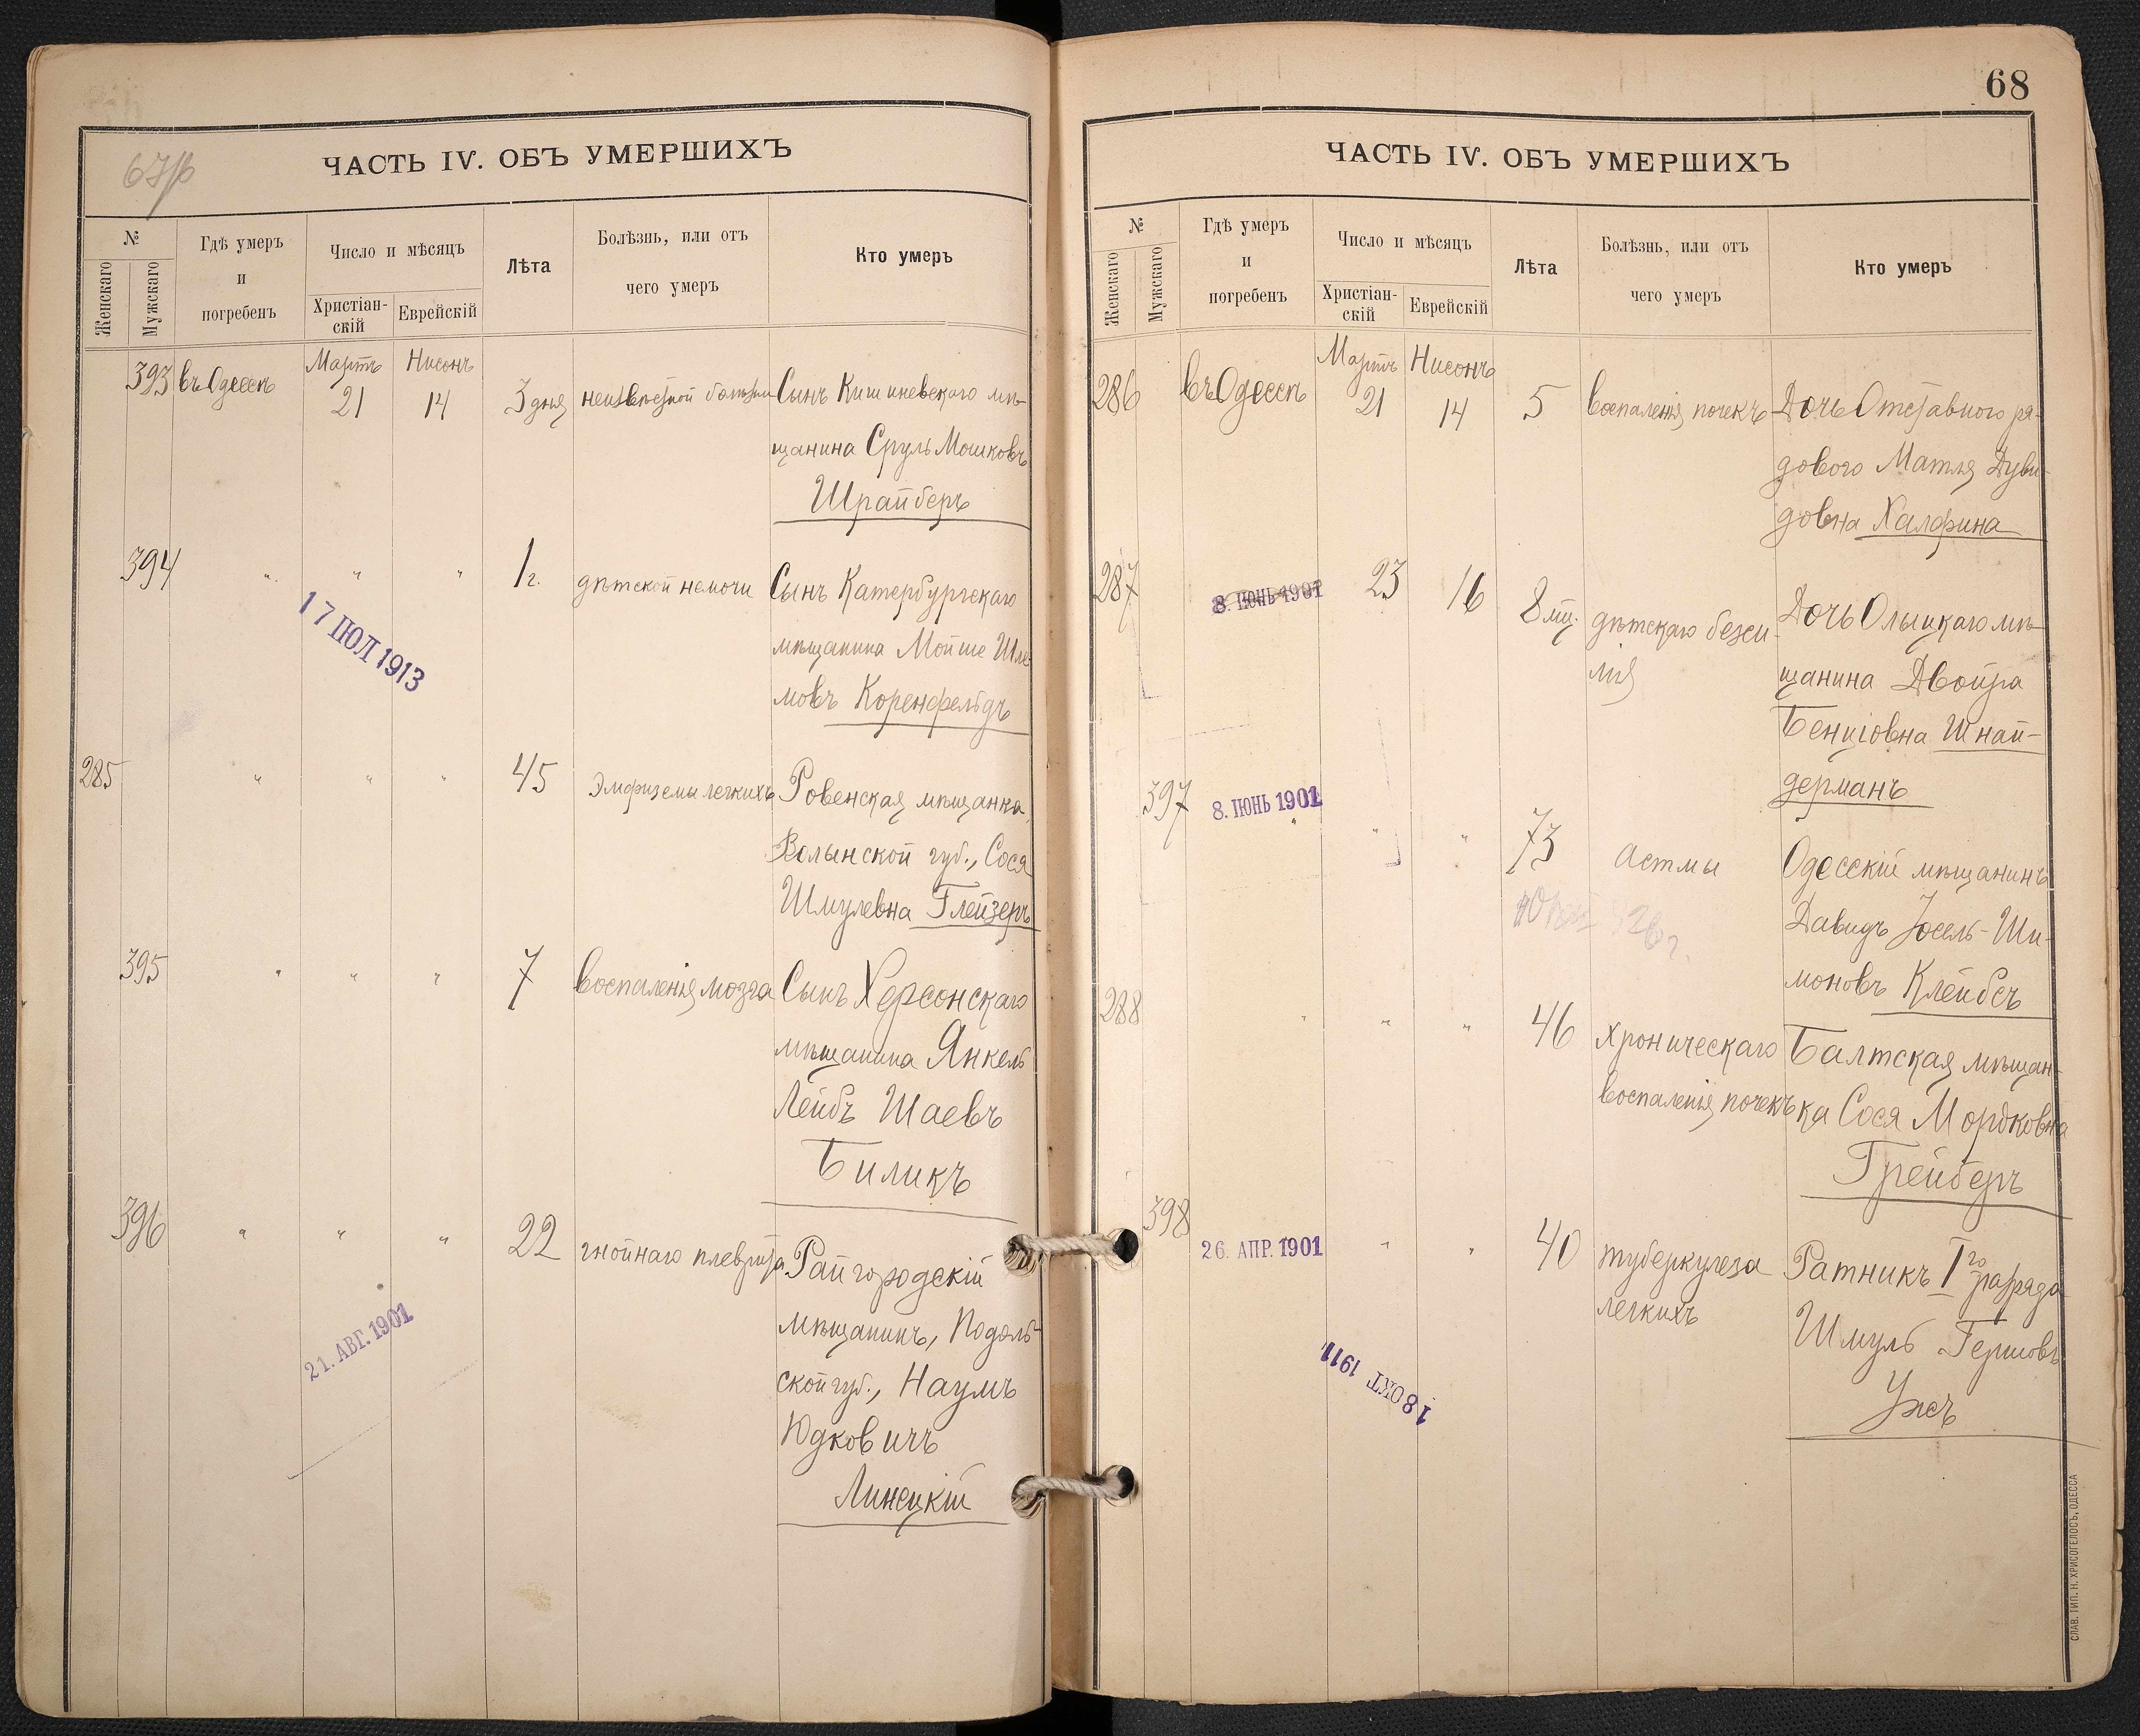 67/б
ЧАСТЬ IV. ОБЪ УМЕРШИХЪ
№
Женскаго
Мужскаго
Гдѣ умеръ
и
погребенъ
Число и мѣсяцъ
Христіан-
скій
Еврейскій
Лѣта
Болѣзнь, или отъ
чего умеръ
Кто умеръ
Мартъ Нисонъ
393 въ Одессѣ 21 14 3 дня неизвѣстной болѣзни Сынъ Кишиневскаго мѣ-
щанина Сруль Мошковъ
Шрайберъ
394 " " " 1 г. дѣтской немочи Сынъ Катербургскаго
мѣщанина Мойше Шле-
мовъ Коренфельдъ
17 ІЮЛ 1913
285 " " " 45 Эмфиземы легкихъ Ровенская мѣщанка,
Волынской губ., Сося
Шмулевна Глейзеръ
395 " " " 7 воспаленія мозга Сынъ Херсонскаго
мѣщанина Янкель
Лейбъ Шаевъ
Биликъ
396 " " " 22 гнойнаго плеврита Райгородскій
мѣщанинъ, Подоль-
ской губ., Наумъ
Юдковичъ
Линецкій
21. АВГ. 1901
68
ЧАСТЬ IV. ОБЪ УМЕРШИХЪ
№
Женскаго
Мужскаго
Гдѣ умеръ
и
погребенъ
Число и мѣсяцъ
Христіан-
скій
Еврейскій
Лѣта
Болѣзнь, или отъ
чего умеръ
Кто умеръ
Мартъ Нисонъ
286 въ Одессѣ 21 14 5 воспаленія почекъ Дочь Отставного ря-
дового Матля Дуви-
довна Халфина
287 8. ІЮНЬ 1901 23 16 8 мц. дѣтскаго безси-
лія
Дочь Олыцкаго мѣ-
щанина Двойра
Бенціовна Шнай-
дерманъ
397 8. ІЮНЬ 1901 " " " 73 астмы Одесскій мѣщанинъ
Давидъ Іосель-Ши-
моновъ Клейбсъ
288 " " " 46 хроническаго
воспаленія почекъ
Балтская мѣщан-
ка Сося Мордковна
Грейберъ
398 26. АПР. 1901 " " 40 туберкулеза
легкихъ
Ратникъ I го разряда
Шмуль Гершовъ
Ужъ
18 ОКТ 1911
СЛАВ. ТИП. Н. ХРИСОГЕЛОСЪ, ОДЕССА